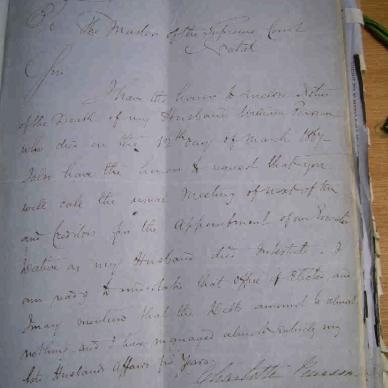 The Master of the Supreme Court
Natal
Sir
I have the honor to enclose Notice
of the Death of my Husband William Pearson
who died on the 12th day of March 1867
I also have the honor to request that you
will call the usual Meeting of next of kin
and Creditors for the Appointment of an Executor
Dative as my Husband died Intestate. I
am ready to undertake that office if elected and
I may mention that the Debts amount to almost
nothing and I have managed almost entirely my
late Husbands Affairs for Years
Charlotte Pearson